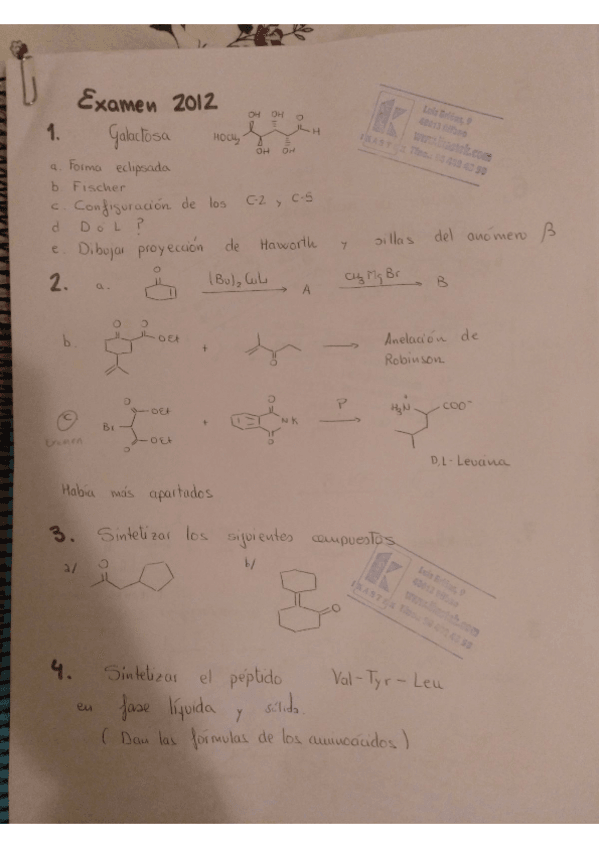 Examen 2012
1. Galactosa HOCH₂ OH OH O H OH OH
a. Forma eclipsada
b Fischer
c. Configuración de los C-2 y C-5
d D ó L ?
e. Dibujar proyección de Haworth y sillas del anómero β
2. a. O (Bu)₂CuLi A CH₃MgBr B
b. O O OEt + O Anelación de
Robinson
c Br O OEt O OEt + O NK O P H₃N COO⁻
Examen
D,L-Leucina
Había más apartados
3. Sintetizar los siguientes compuestos
a/ O b/ O
4. Sintetizar el péptido Val-Tyr-Leu
en fase líquida y sólida.
(Dan las fórmulas de los aminoácidos)